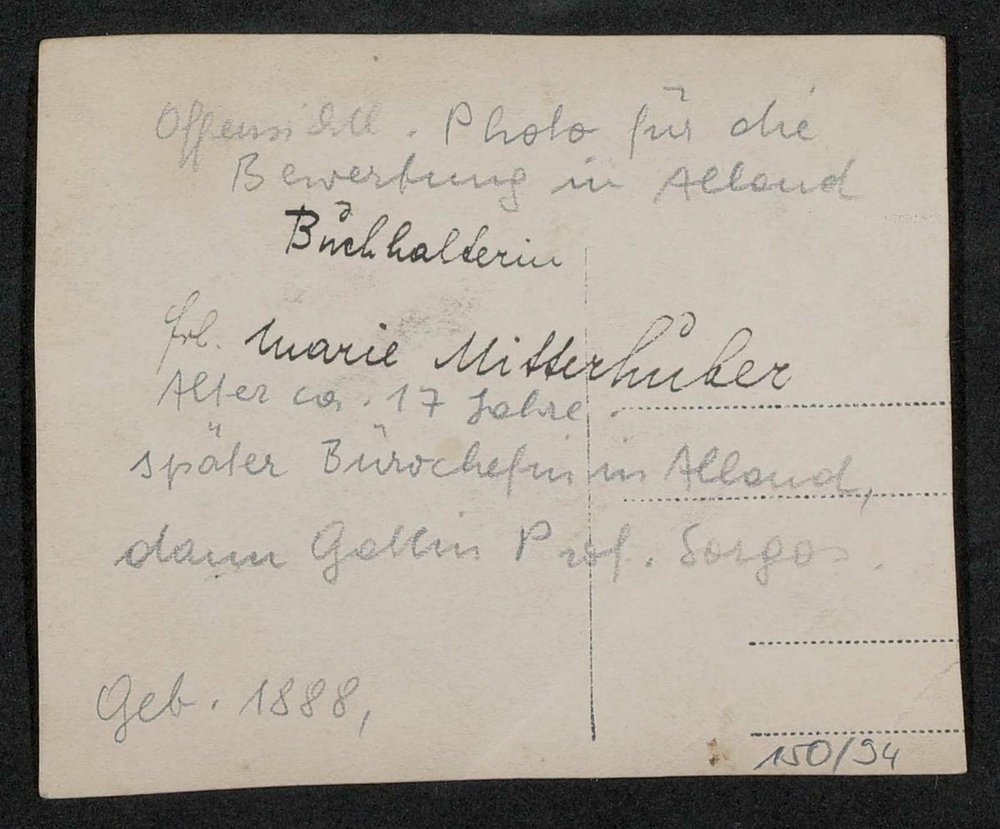 Offensichtl. Photo für die
Bewerbung in Alland
Buchhalterin
Frl. Marie Mitterhuber
Alter ca. 17 Jahre.
später Bürochefin in Alland,
dann Gattin Prof. Sorgos.
Geb. 1888,
150/94